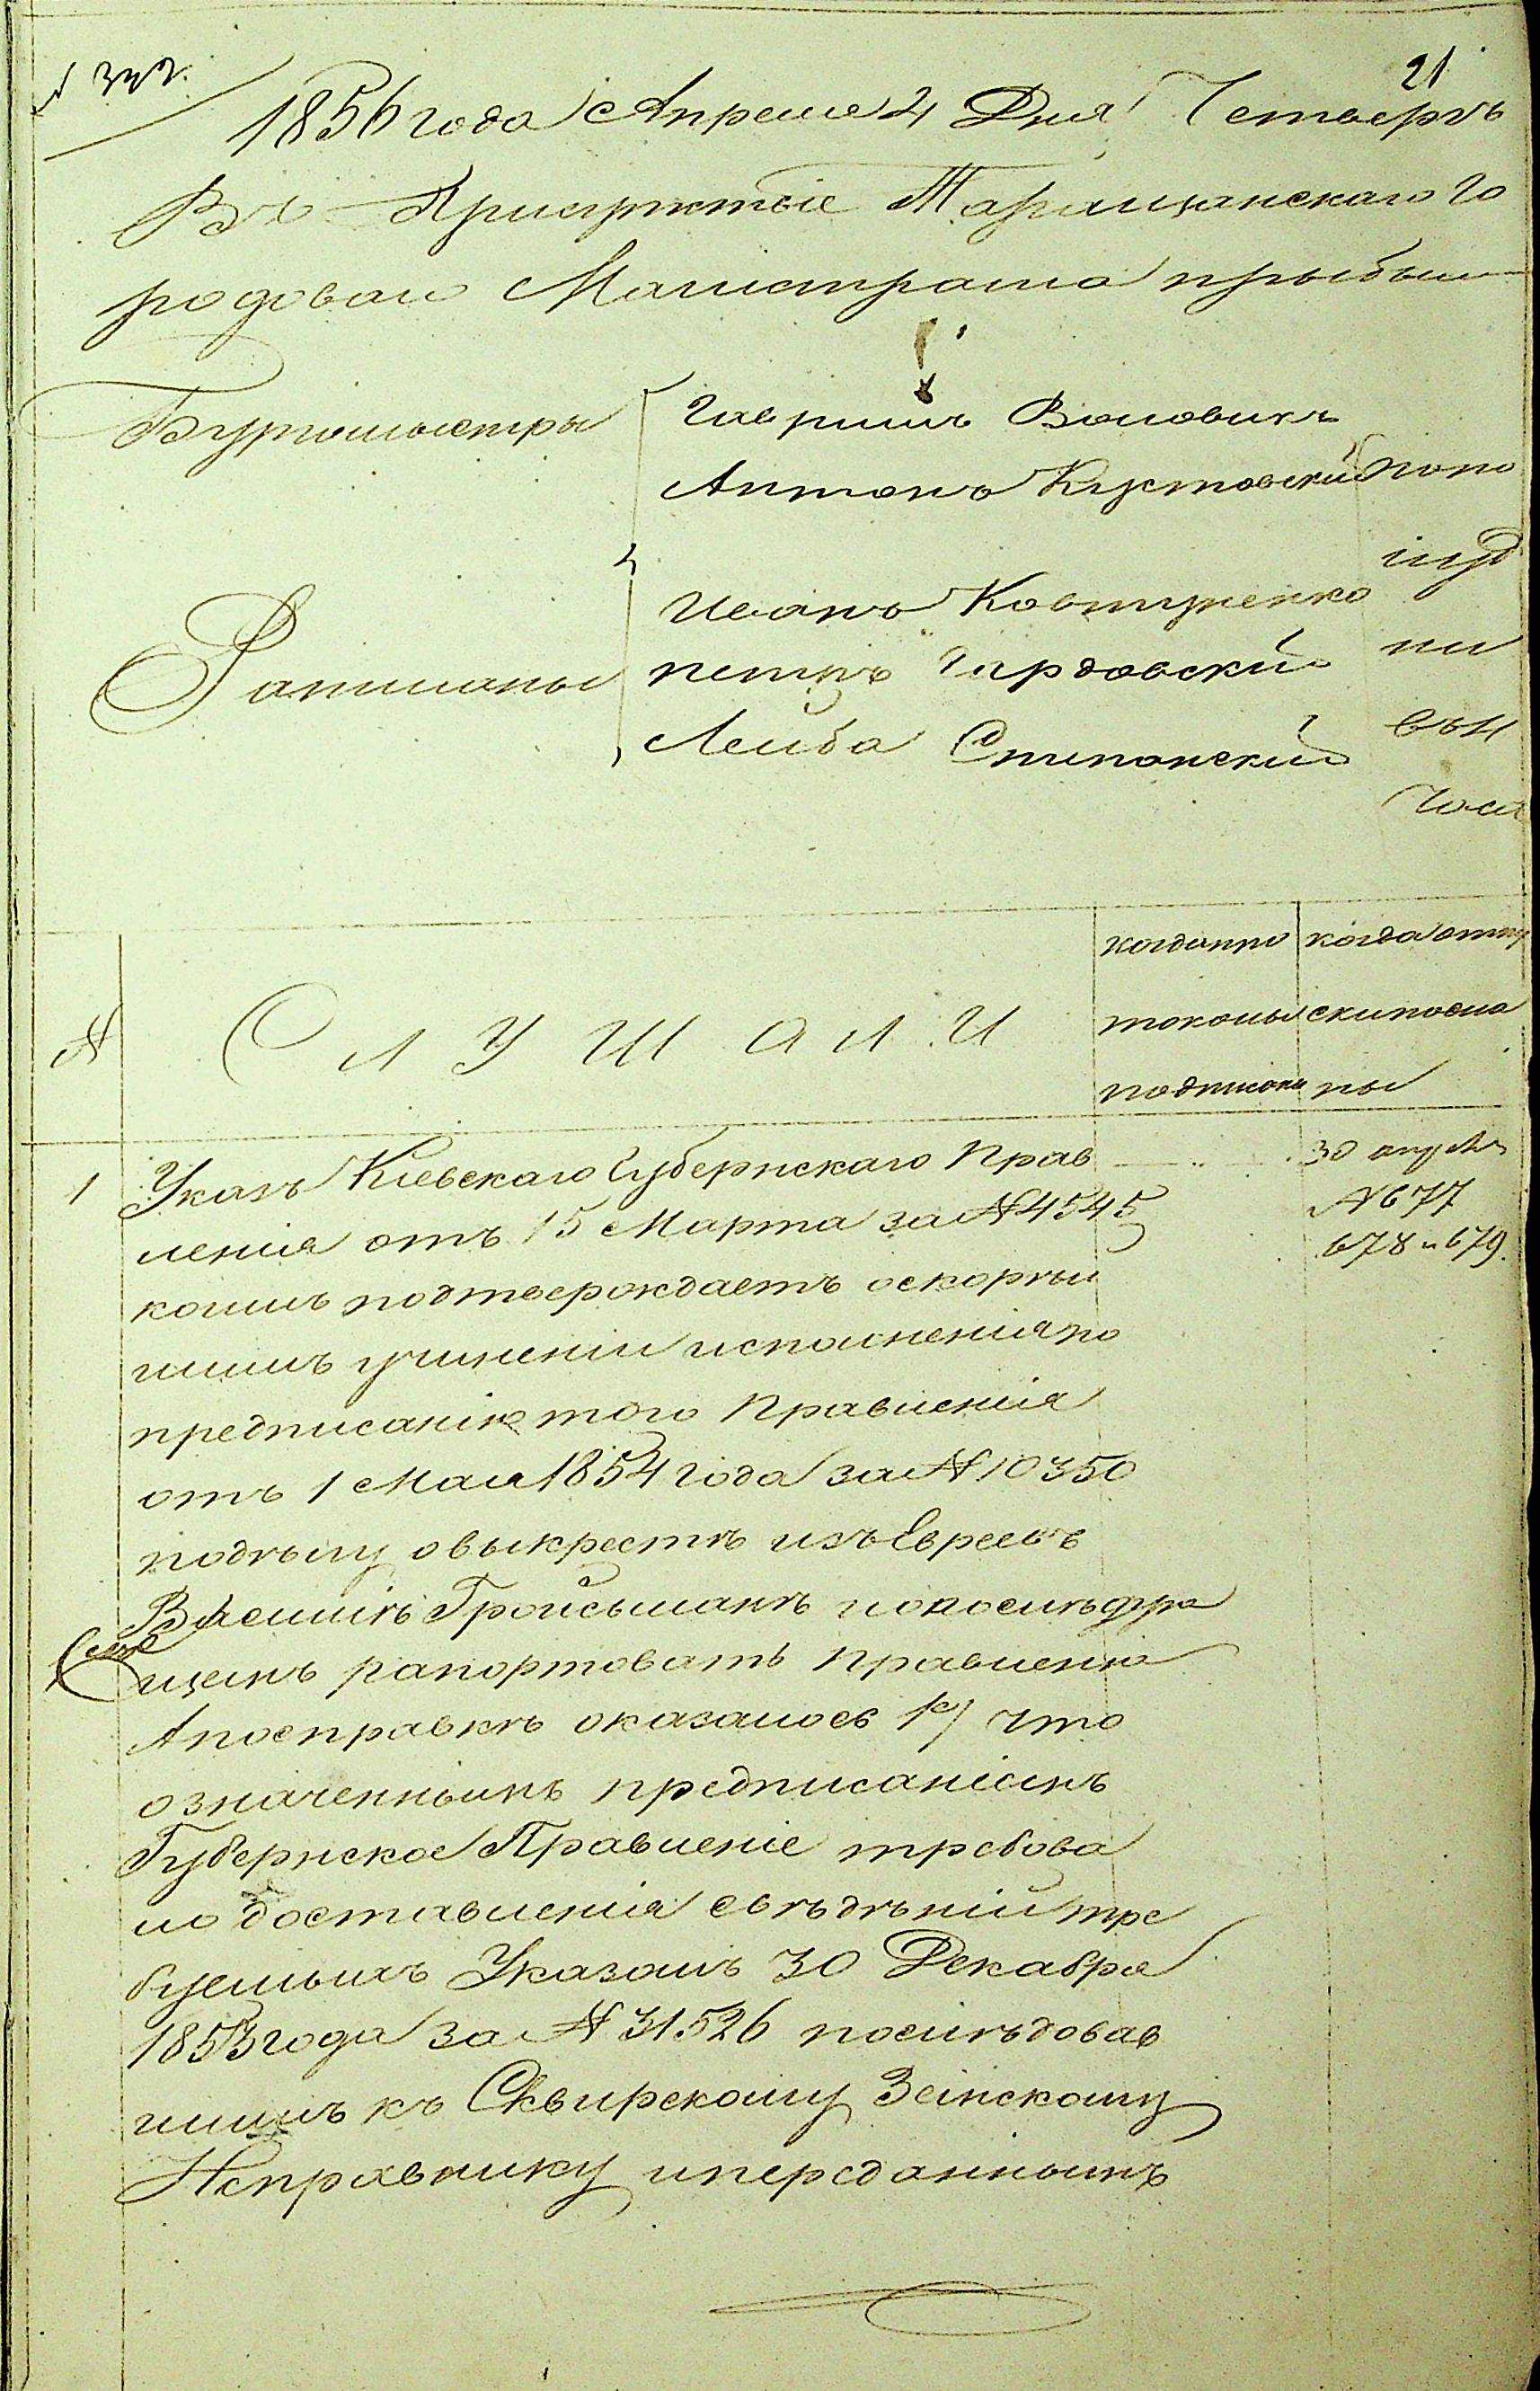 № 342.
21
1856 года Апреля 4 Дня Четвергъ
Въ Присутствіе Таращанскаго Го
родоваго Магистрата прибыли
Бургомыстры
Гаврiилъ Воловикъ
Антонъ Кустовскій
попо
луд
ни
въ
часа
Ратманы
Иванъ Ковтуненко
петръ Гардовскій
Лейба Степанскій
№
СЛУШАЛИ
когда про
токолы
подписаны
когда отпу
ски посла
ны
1
Указъ Кіевскаго Губернскаго Прав
30 апреля
№ 677
678 и 679.
ленія отъ 15 Марта за № 4545
коимъ подтверождаетъ оскорѣй
шимъ учиненіи исполненія по
предписанію того Правленія
отъ 1 Мая 1854 года за № 10350
по дѣлу о выкрестѣ изъ Евреевъ
Василіѣ Гройсманѣ и о послѣдую
щемъ рапортовать Правленію
А посправкѣ оказалось 1е/ что
означеннымъ предписаніемъ
Губернское Правленіе требова
ло доставленія свѣдѣній тре
буемыхъ Указомъ 30 Декабря
1853 года за № 31526 послѣдовав
шимъ къ Сквирскому Земскому
Исправнику и переданнымъ